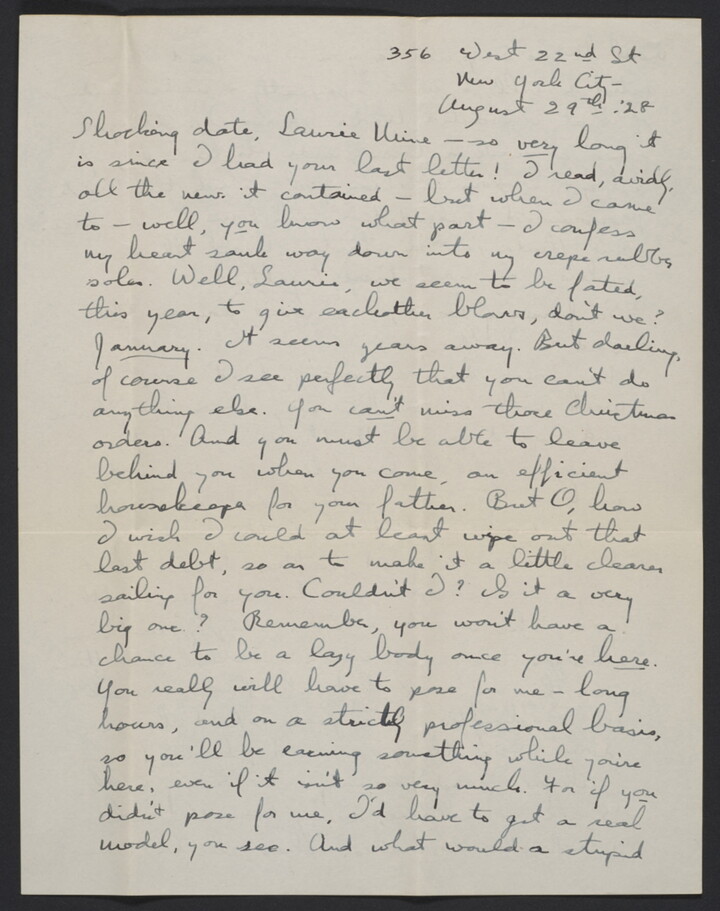 356 West 22nd St
New York City -
August 29th '28
Shocking date, Laurie Mine - so very long it
is since I had your last letter! I read, avidly,
all the news it contained - but when I came
to - well, you know what part - I confess
my heart sank way down into my crepe rubber
soles. Well, Laurie, we seem to be fated,
this year, to give eachother blows, don't we?
January. It seems years away. But darling,
of course I see perfectly that you can't do
anything else. You can't miss those Christmas
orders. And you must be able to leave
behind you when you come, an efficient
housekeeper for your father. But O, how
I wish I could at least wipe out that
last debt, so as to make it a little clearer
sailing for you. Couldn't I? Is it a very
big one? Remember, you won't have a
chance to be a lazy body once you're here.
You really will have to pose for me - long
hours, and on a strictly professional basis,
so you'll be earning something while you're
here, even if it isn't so very much. For if you
didn't pose for me, I'd have to get a real
model, you see. And what would a stupid